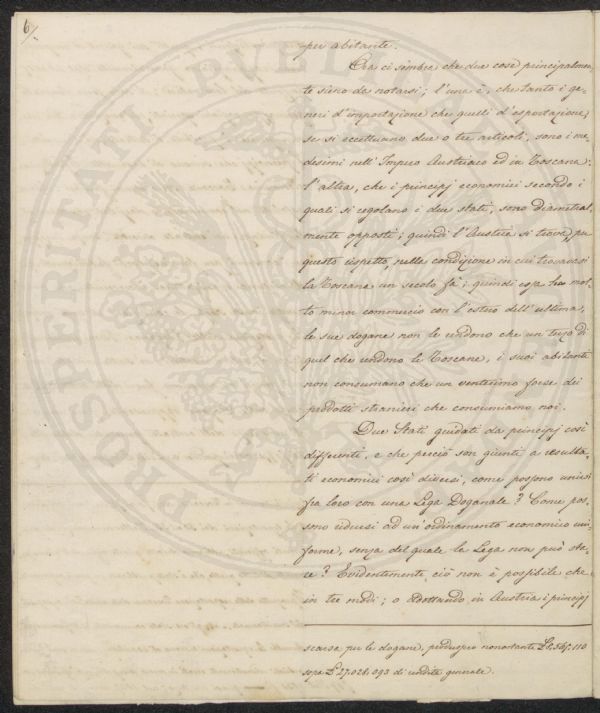 6/.
per abitante.
Ora ci sembra che due cose principalmen-
te sieno da notarsi; l'una è, che tanto i ge-
neri d'importazione che quelli d'esportazione,
se si eccettuano due o tre articoli, sono i me-
desimi nell'Impero Austriaco ed in Toscana:
l'altra, che i principj economici secondo i
quali si regolano i due stati, sono diametral-
mente opposti; quindi l'Austria si trova, per
questo rispetto, nella condizione in cui trovavasi
la Toscana un secolo fà; quindi essa ha mol-
to minor commercio con l'estero dell'ultima,
le sue dogane non le rendono che un terzo di
quel che rendono le Toscane, i suoi abitanti
non consumano che un ventesimo forse dei
prodotti stranieri che consumiamo noi.
Due Stati guidati da principj così
differenti, e che perciò son giunti a resulta-
ti economici così diversi, come possono unirsi
fra loro con una Lega Doganale? Come pos-
sono ridursi ad un'ordinamento economico uni-
forme, senza del quale la Lega non può sta-
re? Evidentemente ciò non è possibile che
in tre modi; o adottando in Austria i principj
scarsa per le dogane, produsse nonostante
sopra £ 27,028,093 di rendita generale.
PROSPERITATI PVBLICAE